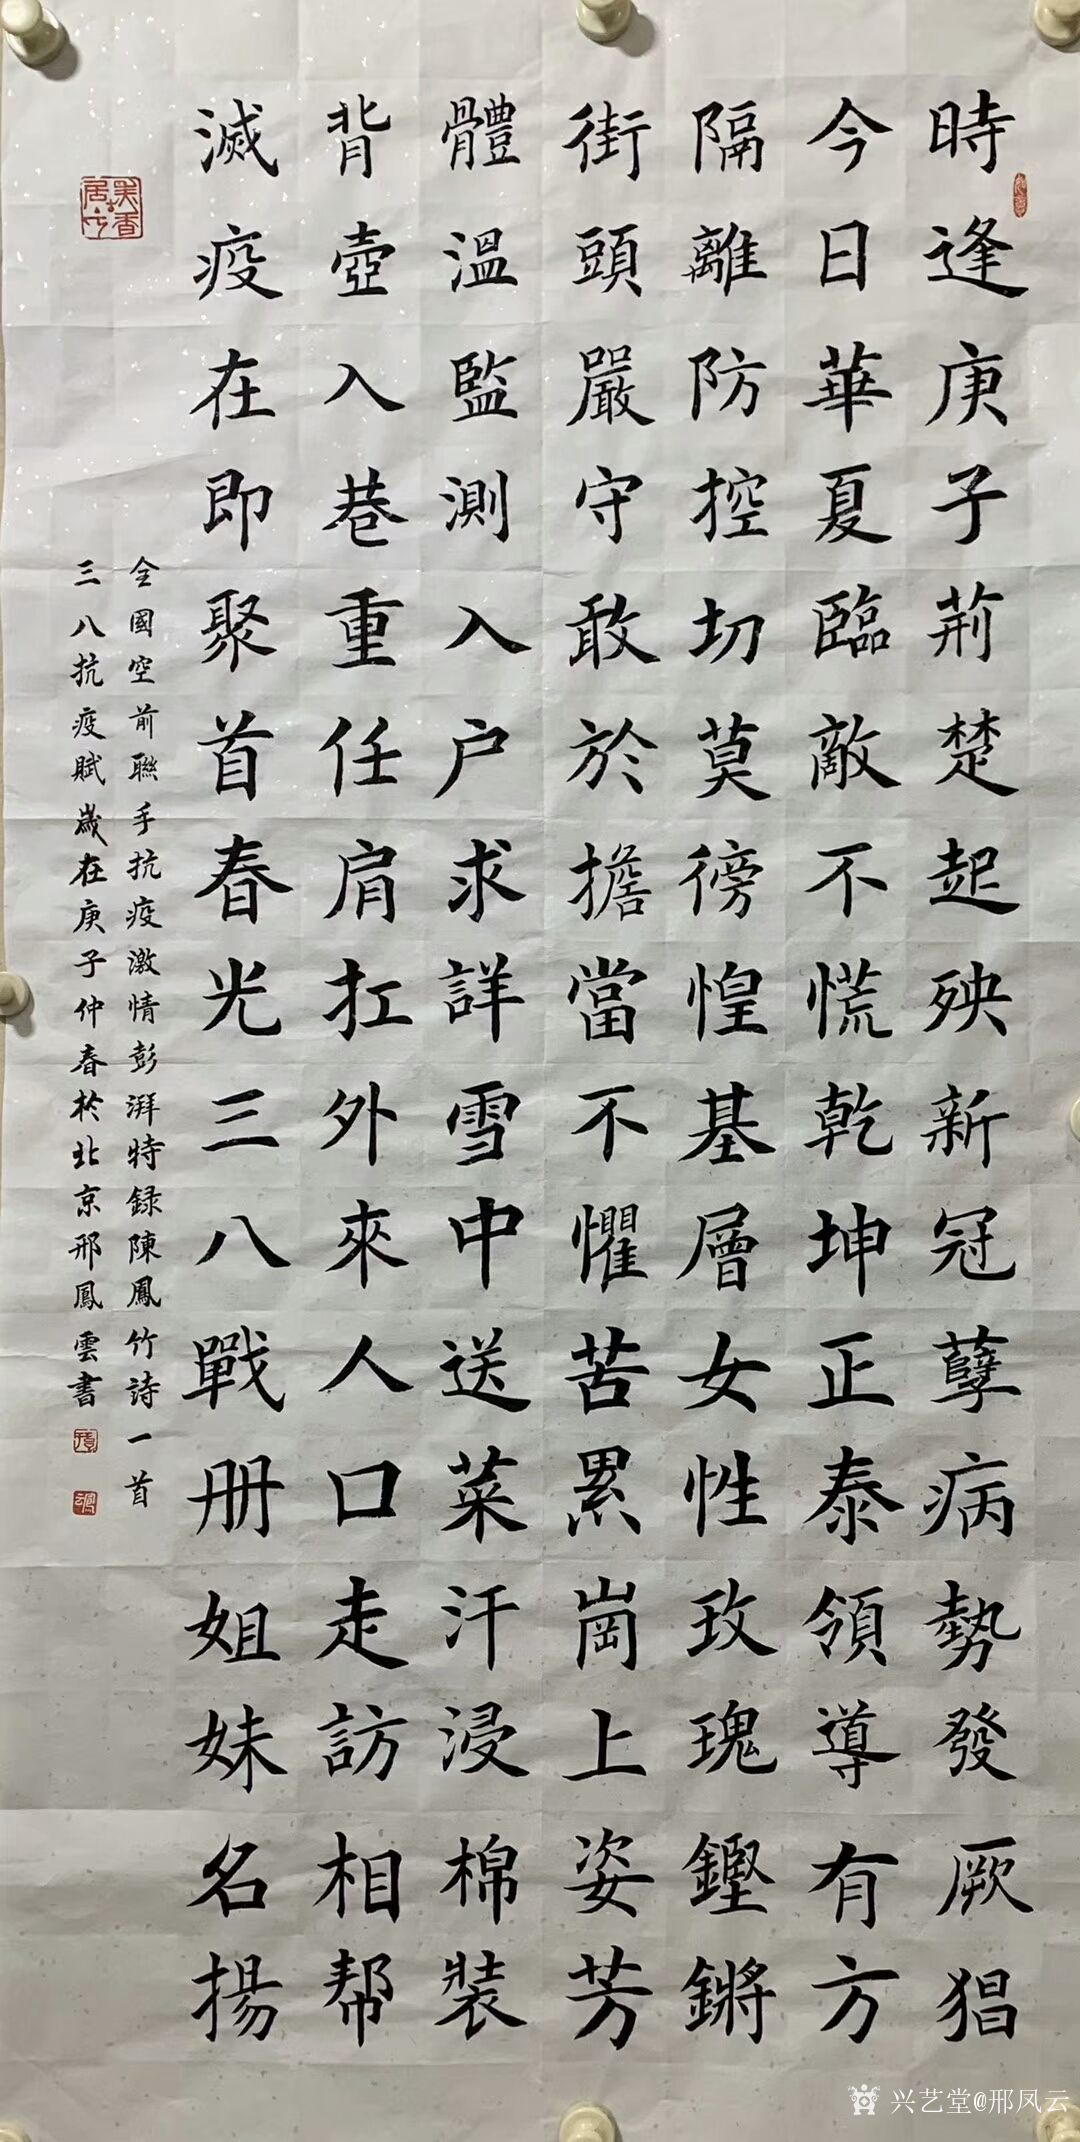 時逢庚子荊楚起殃新冠孽病勢發厥猖
今日華夏臨敵不慌乾坤正泰領導有方
隔離防控切莫徬惶基層女性玫瑰鏗鏘
街頭嚴守敢於擔當不懼苦累崗上姿芳
體溫監測入户求詳雪中送菜汗浸棉裝
背壺入巷重任肩扛外來人口走訪相帮
滅疫在即聚首春光三八戰册姐妹名揚
全國空前聯手抗疫激情彭湃特録陳鳳竹詩一首
三八抗疫賦歲在庚子仲春於北京邢鳳雲書
兴艺堂@邢凤云